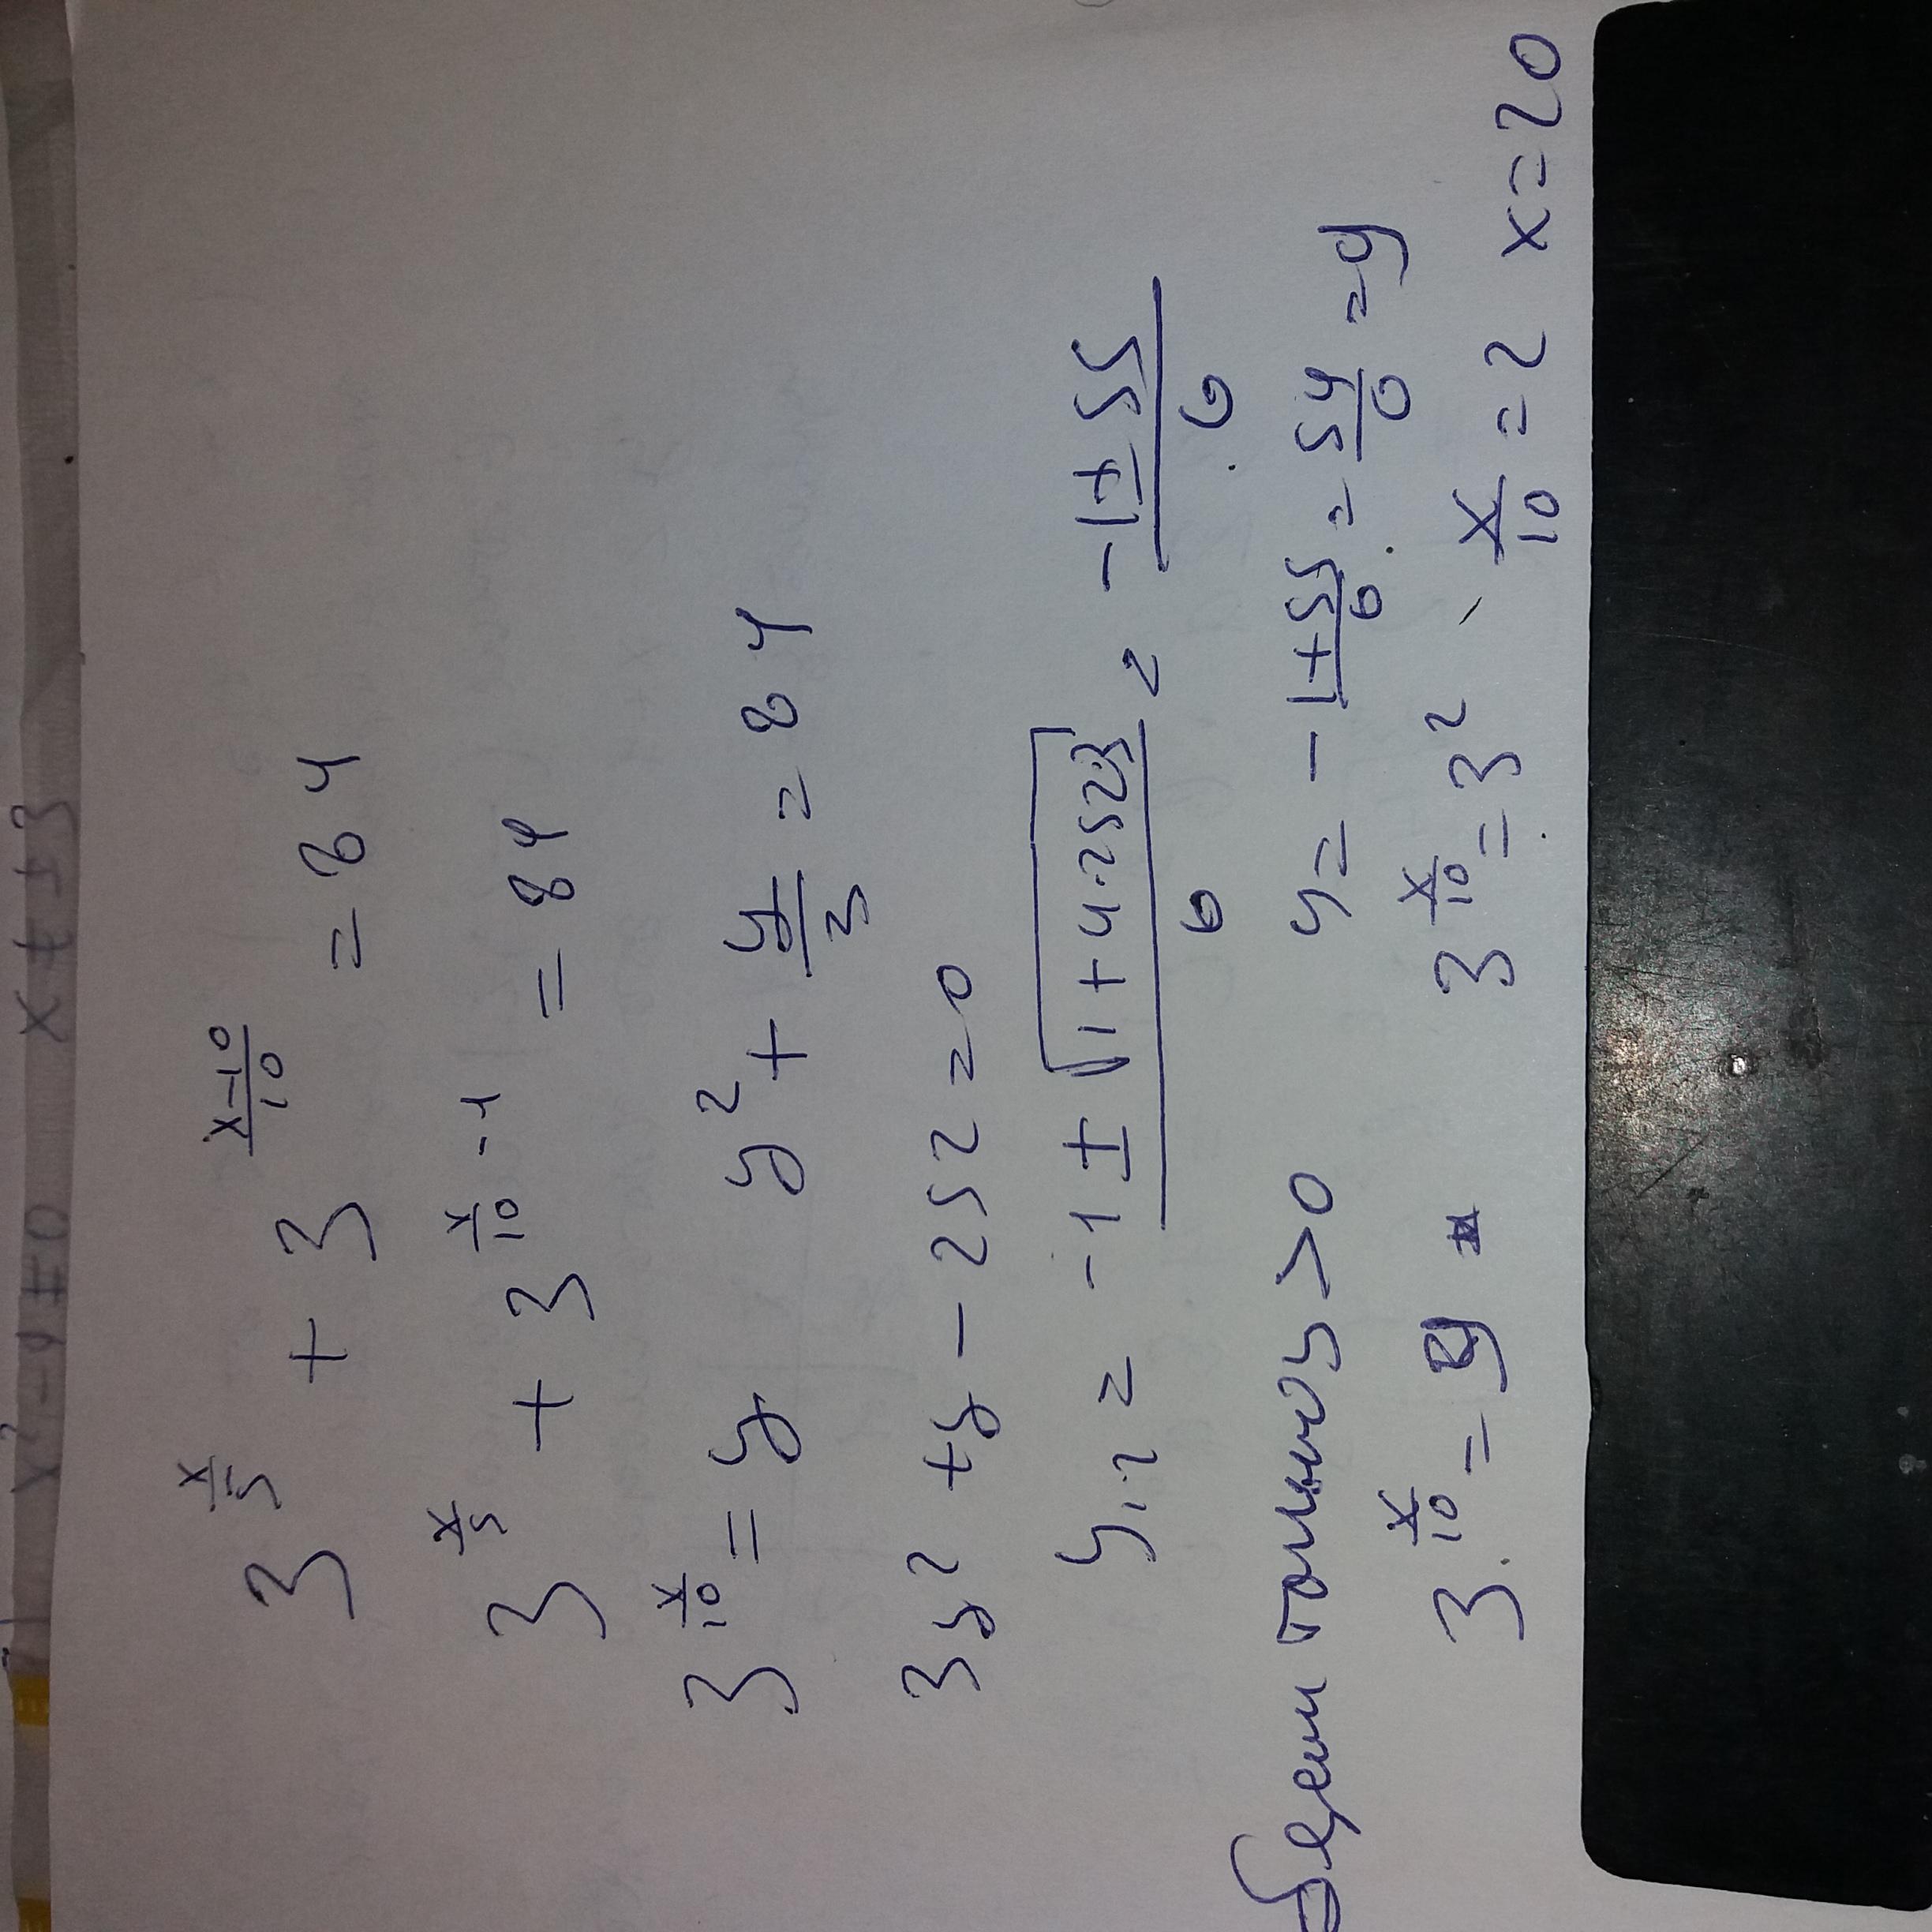 3^{x/5} + 3^{(x-10)/10} = 84
3^{x/5} + 3^{x/10 -1} = 84
3^{x/10} = y y² + y/3 = 84
3y² + y - 252 = 0
y₁,₂ = (-1 ± √(1+4·252·3))/6 = (-1±55)/6
берем только y>0 y = (-1+55)/6 = 54/6 = 9
3^{x/10} = 9 3^{x/10} = 3² x/10 = 2 x=20